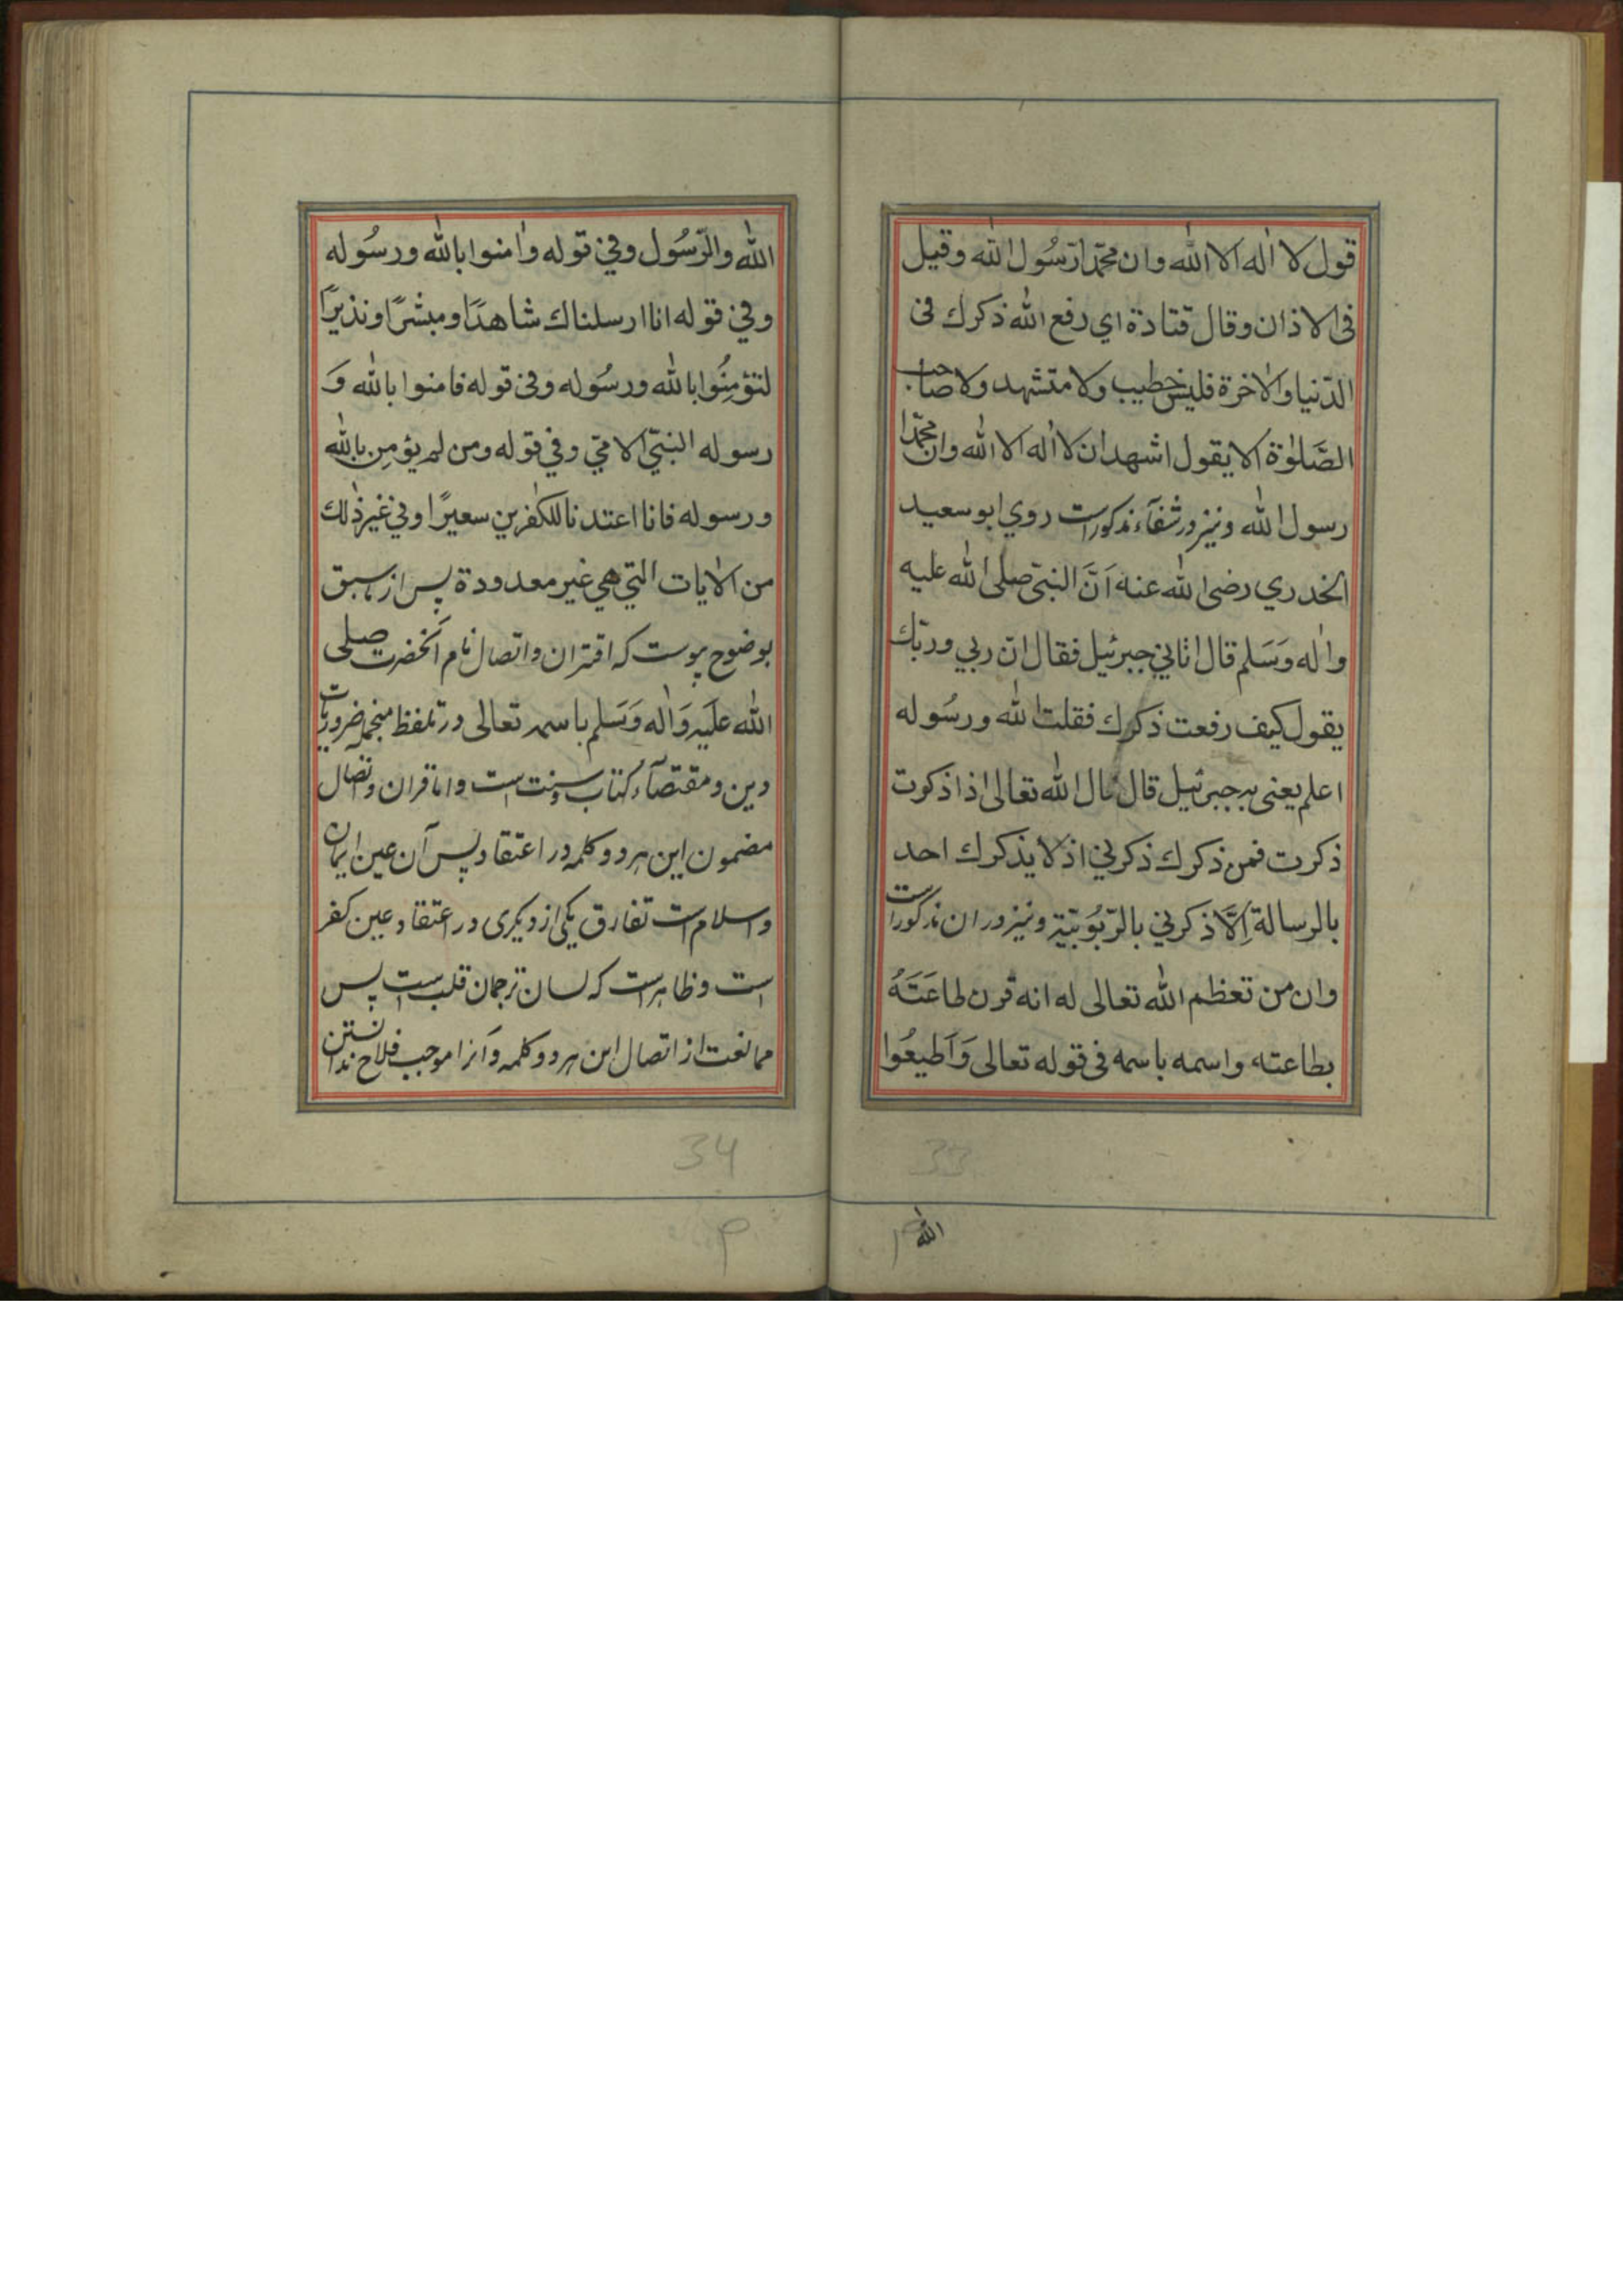 قول لا اله الا الله وان محمّدا رسُول الله وقيل
فی الاذان وقال قتادة اي رفع الله ذكرك فی
الدّنيا والاخرة فليس خطيب ولا متشهد ولا صاحب
الصَّلوٰة الا يقول اشهد ان لا اله الا الله وان محمّدا
رسول الله ونیز در شفآء مذکور است روي ابو سعيد
الخدري رضی الله عنه اَنَّ النبيّ صلی الله عليه
واٰله وَسَلم قال اتاني جبرئيل فقال انّ ربي وربّك
يقول كيف رفعت ذكرك فقلت الله ورسُوله
اعلم یعنی به جبرئیل قال قال الله تعالى اذا ذكرت
ذكرت فمن ذكرك ذكرني اذ لا يذكرك احد
بالرسالة اِلَّا ذكرني بالرّبُوبيّة ونیز در ان مذکور است
وان من تعظم الله تعالى له انه قرن طاعَتَهُ
بطاعته واسمه باسمه فی قوله تعالى وَاَطيعُوا
الله
33
الله والرّسُول وفي قوله واٰمنوا بالله ورسُوله
وفي قوله انا ارسلناك شاهدًا ومبشرًا ونذيرًا
لتؤمِنُوا بالله ورسُوله وفي قوله فامنوا بالله وَ
رسوله النبيّ الامّيّ وفي قوله ومن لم يؤمِن بالله
ورسوله فانا اعتدنا للكٰفرين سعيرًا وفي غير ذٰلك
من الاٰيات التي هي غير معدودة پس از ما سبق
بوضوح پیوست که اقتران واتصال نام آنحضرت صلی
الله علَيه وَاٰله وَسَلم باسمه تعالی در تلفظ منجمله ضروریات
دین ومقتضآء کتاب وسنت است واما قران واتصال
مضمون این هر دو کلمه در اعتقاد پس آن عین ایمان
واسلام است تفارق یکی از دیگری در اعتقاد عین کفر
است وظاهر است که لسان ترجمان قلب است پس
ممانعت از اتصال این هر دو کلمه وآنرا موجب فلاح ندانستن
34